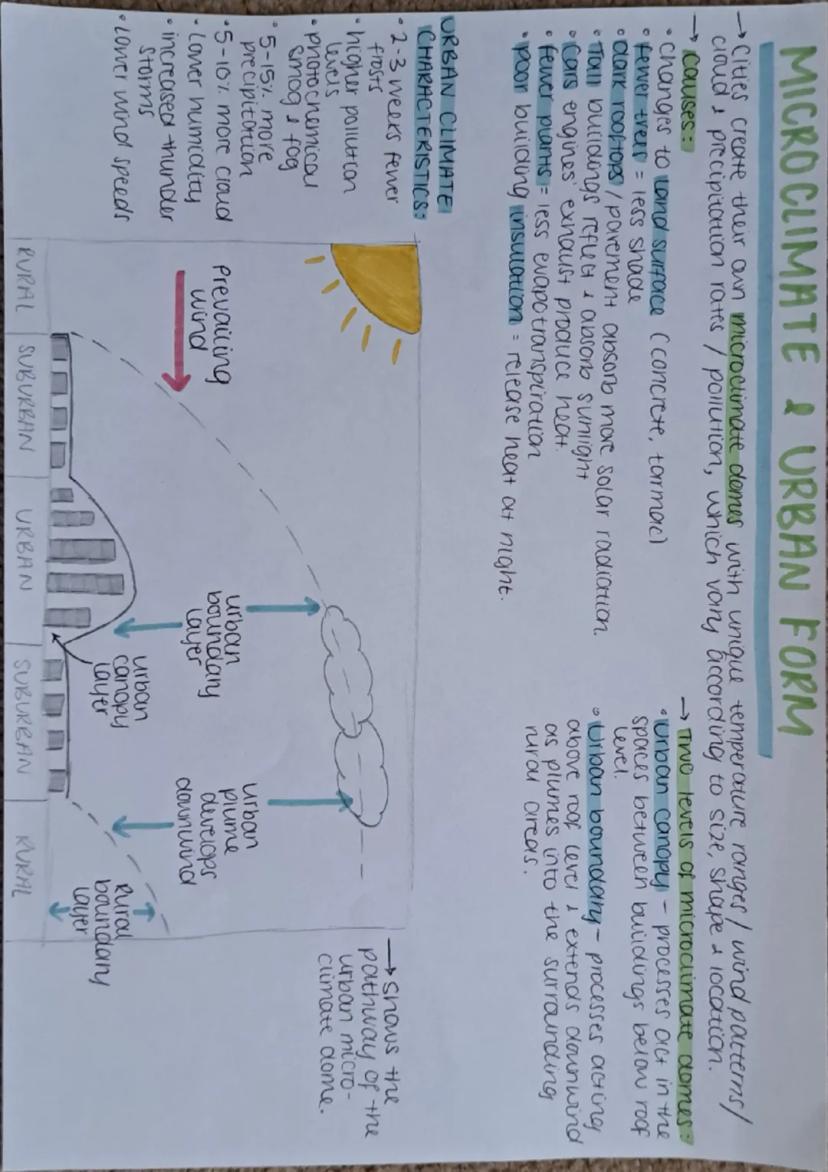 MICROCLIMATE & URBAN FORM
→ Cities create their own microclimate domes with unique temperature ranges / wind patterns /
cloud & precipitation rates / pollution, which vary according to size, shape & location.
→ causes:
• changes to land surface (concrete, tarmac)
• fewer trees = less shade
• dark rooftops / pavement absorb more solar radiation.
• Tall buildings reflect & absorb sunlight
• cars engines' exhaust produce heat.
• fewer plants = less evapotranspiration
• poor building insulation = release heat at night.
→ Two levels of microclimate domes:
• urban canopy - processes act in the
spaces between buildings below roof
level.
• urban boundary - processes acting
above roof level & extends downwind
as plumes into the surrounding
rural areas.
URBAN CLIMATE
CHARACTERISTICS:
• 2-3 weeks fewer
frosts
• higher pollution
levels
• photochemical
smog & fog
• 5-15% more
precipitation
• 5-10% more cloud
• Lower humidity
• increased thunder
storms
• lower wind speeds
prevailing
wind
urban
boundary
layer
urban
canopy
layer
urban
plume
develops
downwind
rural
boundary
layer
RURAL
SUBURBAN
URBAN
SUBURBAN
RURAL
→ shows the
pathway of the
urban micro-
climate dome.